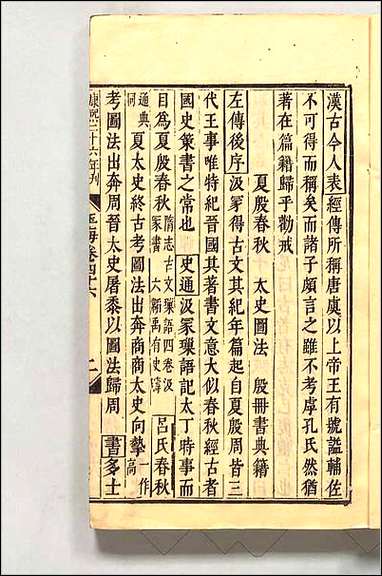 漢古今人表經傳所稱唐虞以上帝王有號謚輔佐
不可得而稱矣而諸子頗言之雖不考虖孔氏然猶
著在篇籍歸乎勸戒
夏殷春秋 太史圖法 殷冊書典籍
左傳後序汲冢得古文其紀年篇起自夏殷周皆三
代王事唯特紀晉國其著書文意大似春秋經古者
國史策書之常也史通汲冢璅語記太丁時事而
目為夏殷春秋隋志古文璅語四卷汲冢書 六韜禹有史璋呂氏春秋
通典同夏太史終古考圖法出奔商商太史向摯一作高
考圖法出奔周晉太史屠黍以圖法歸周 書多士
康熙二十六年刋 玉海卷四十六 二